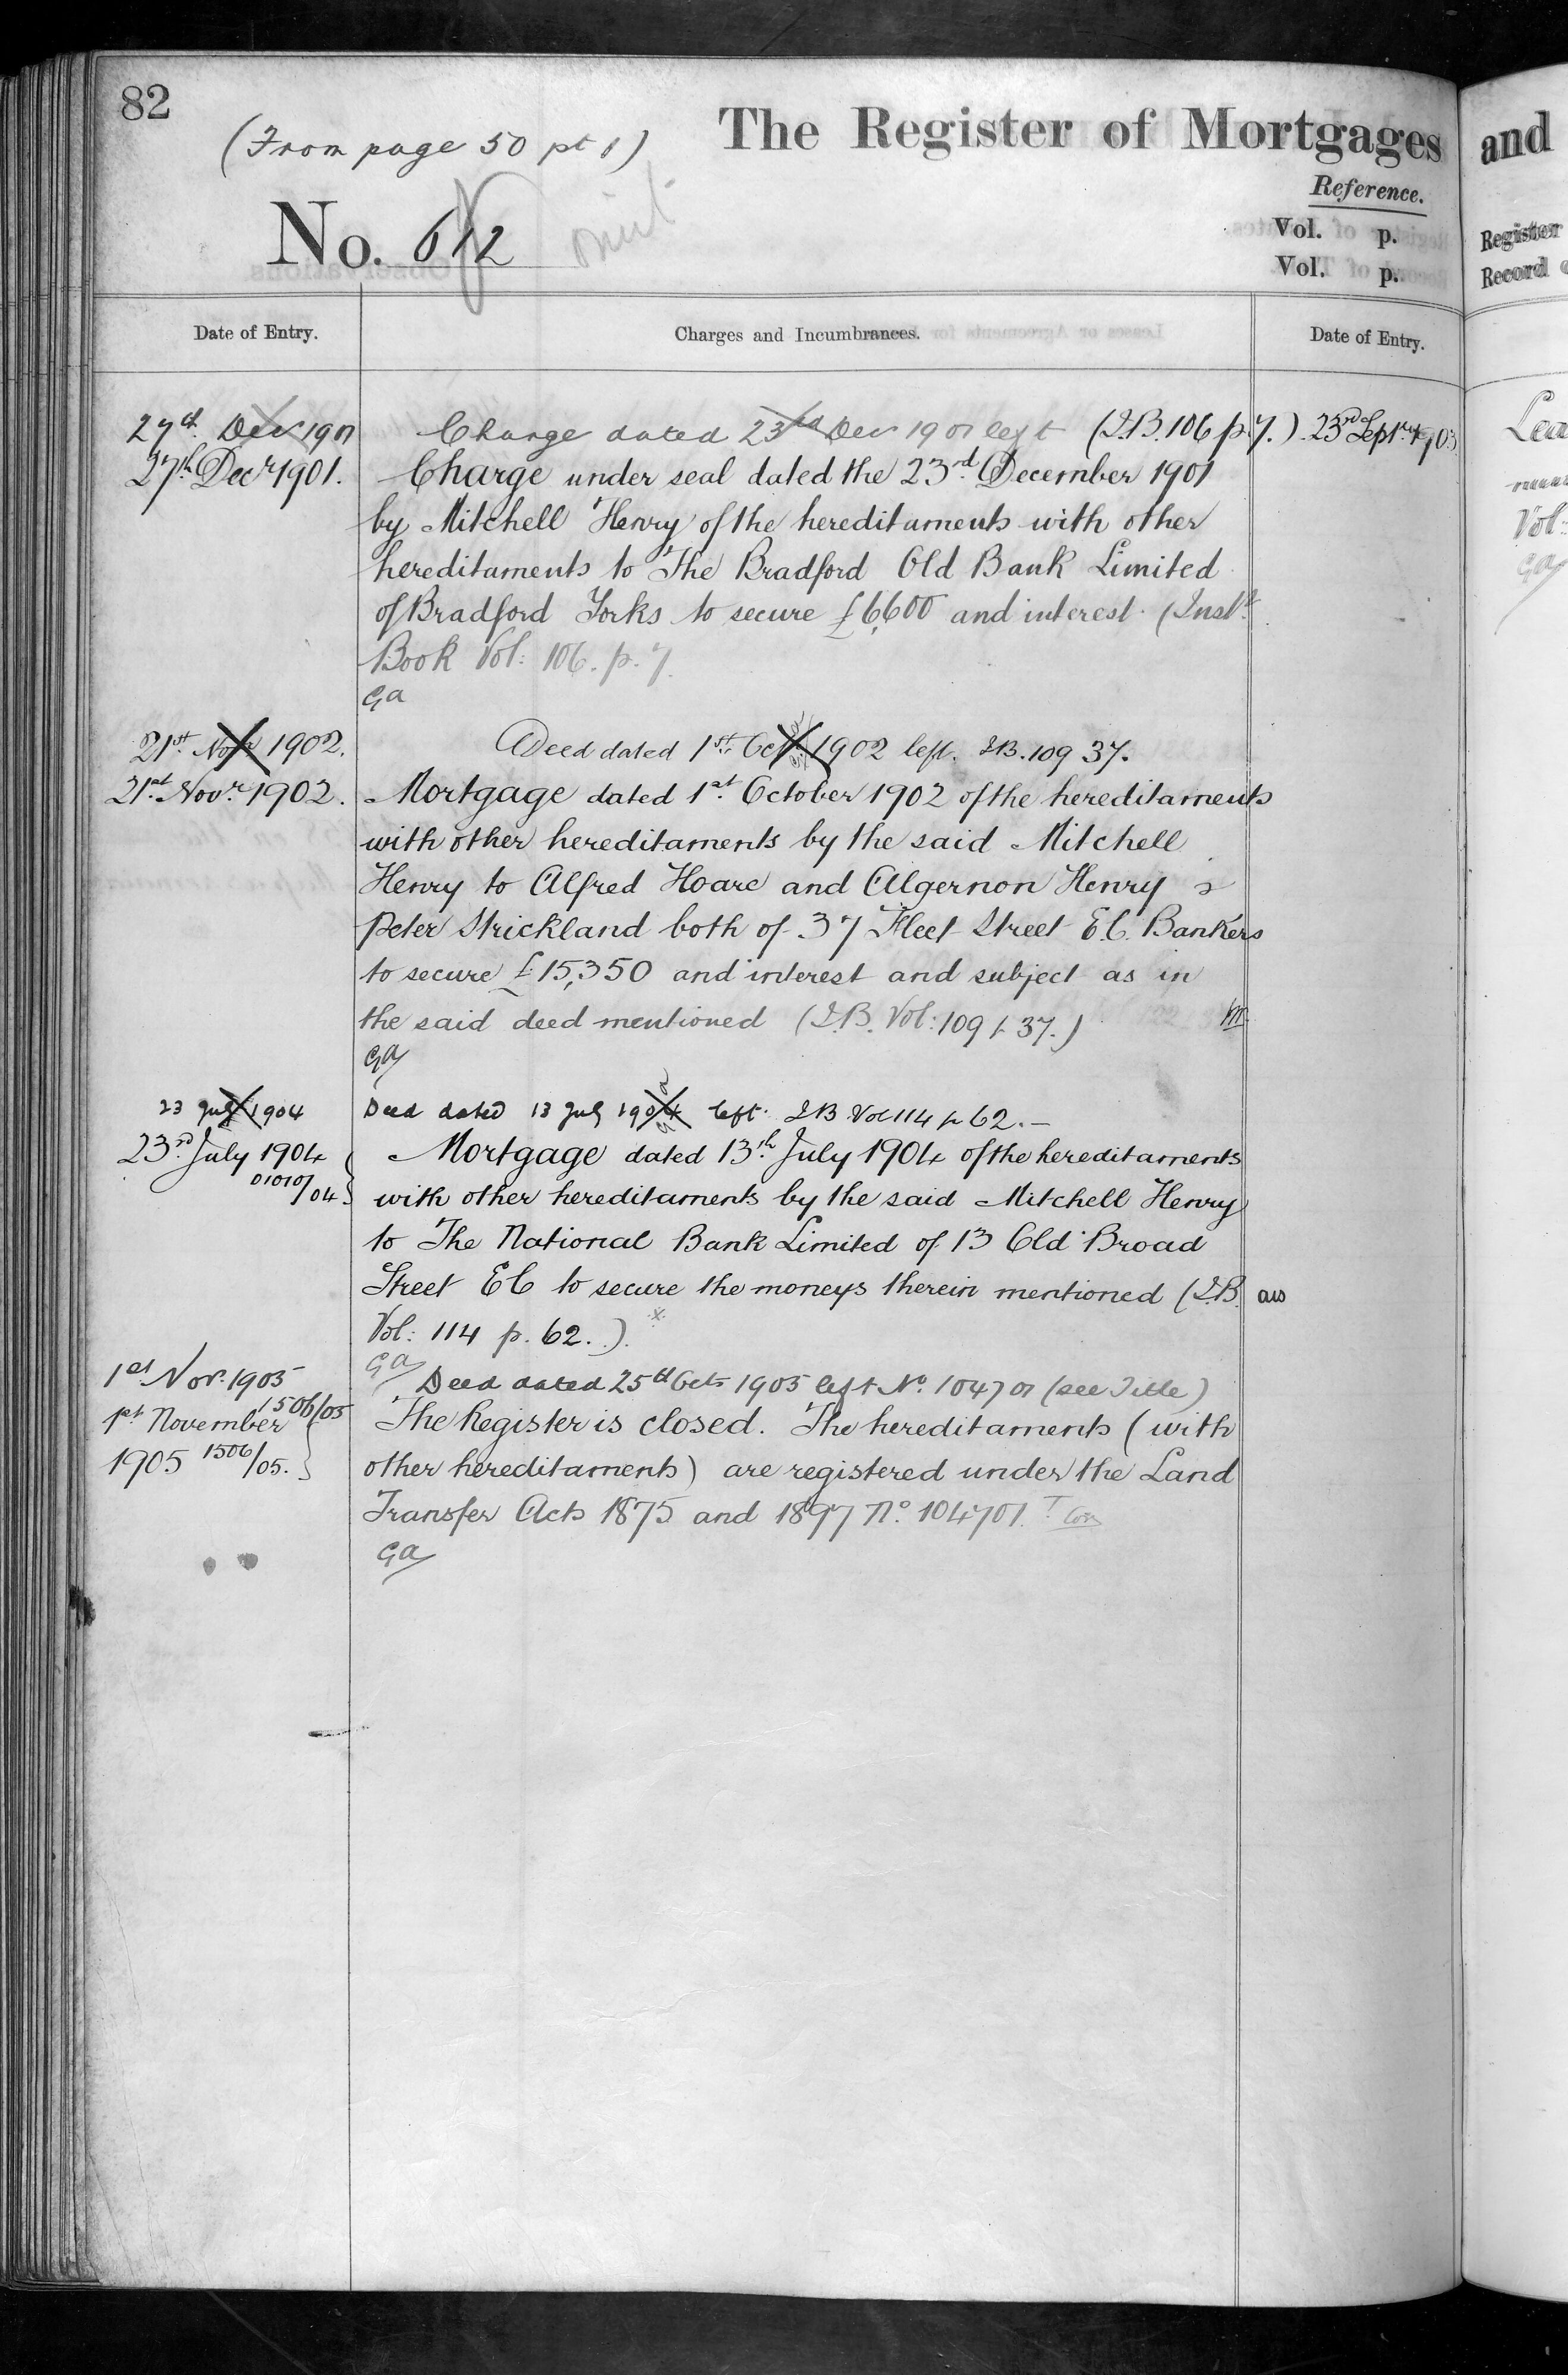 82
(From page 50 pt 1)
The Register of Mortgages
and
Reference.
No. 612
omit
Vol. p.
Register
Vol. p.
Record
Date of Entry.
Charges and Incumbrances.
Date of Entry.
27th Dec 1901
Charge dated 23rd Dec 1901 left (I.B. 106 p. 7.)
23rd Septr 1903
27th Decr 1901.
Charge under seal dated the 23rd December 1901
by Mitchell Henry of the hereditaments with other
hereditaments to The Bradford Old Bank Limited
of Bradford Yorks to secure £6,600 and interest. (Instt
Book Vol: 106. p. 7.
GA
21st Novr 1902.
Deed dated 1st Octr 1902 left. I.B. 109 37.
21st Novr 1902.
Mortgage dated 1st October 1902 of the hereditaments
with other hereditaments by the said Mitchell
Henry to Alfred Hoare and Algernon Henry
Peter Strickland both of 37 Fleet Street E.C. Bankers
to secure £15,350 and interest and subject as in
the said deed mentioned (I.B. Vol: 109 p. 37.)
GA
23 July 1904
Deed dated 13 July 1904 left. I B Vol 114 p 62. —
23rd July 1904
01010/04
Mortgage dated 13th July 1904 of the hereditaments
with other hereditaments by the said Mitchell Henry
to The National Bank Limited of 13 Old Broad
Street E C to secure the moneys therein mentioned (I.B.
Vol: 114 p. 62.)
GA
1st Nov. 1905
1506/05
Deed dated 25th Oct 1905 left No. 104701 (see Title)
1st November
1905 1506/05.
The Register is closed. The hereditaments (with
other hereditaments) are registered under the Land
Transfer Acts 1875 and 1897 No. 104701.
GA
Vol:
GA